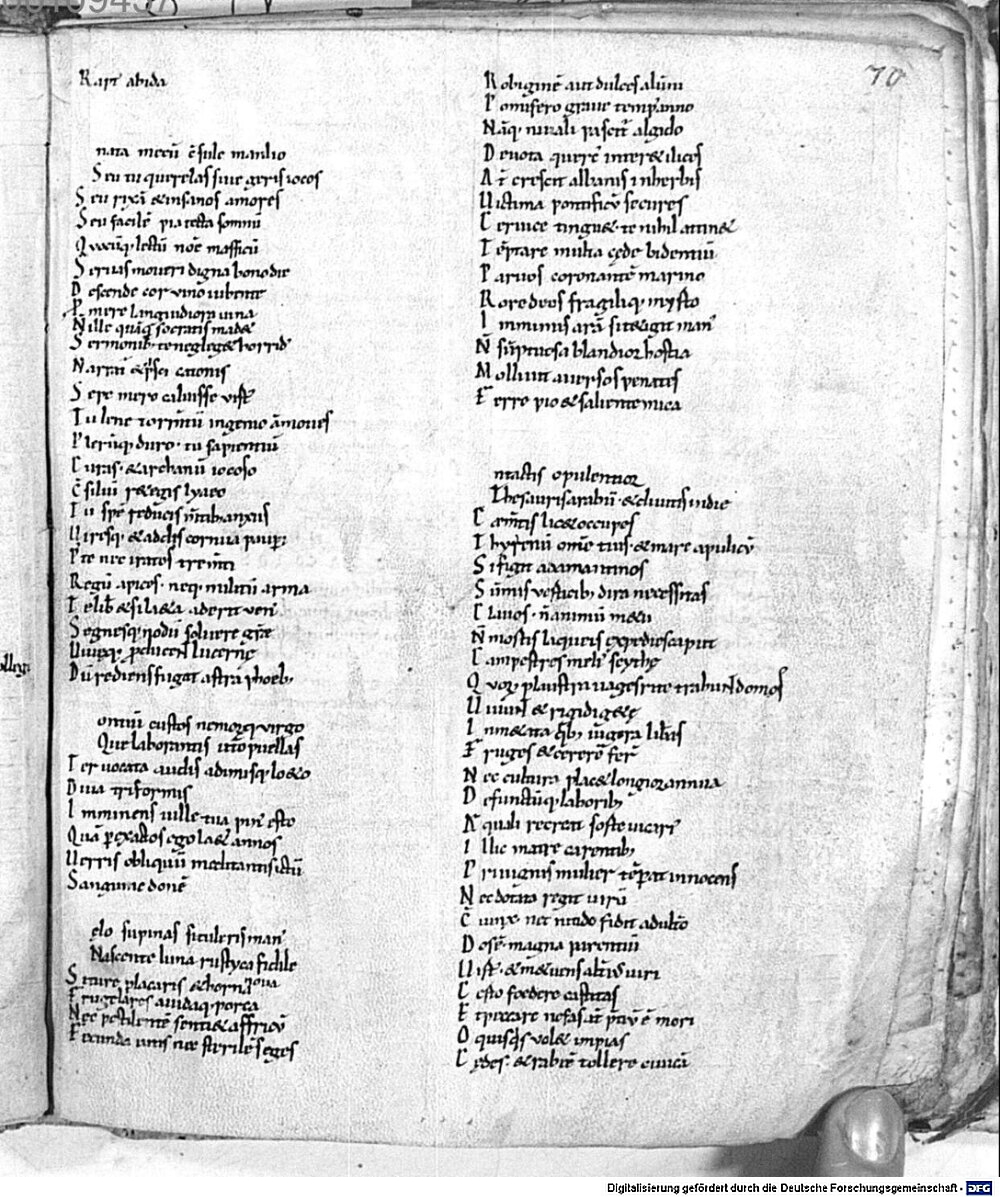 70
Rapt' abida
nata mecū cōsule manlio
Seu tu querelas siue geris iocos
Seu rixā & insanos amores
Seu facilē pia testa somnū
Quocūq; lectū nōē massicū
Seruas moueri digna bono die
Descende coruino iubente
Pmere languidiora uina
N ille quāq; socratis mad&
Sermonib; te negleg& horrid'
Narrat' & prisci catonis
Sepe mero caluisse uist'
Tu lene tormtū ingenio āmoues
Plerūq; duro. tu sapientiū
Curas. & archanū iocoso
Cōsiliū r&egis lyaeo
Tu spē reducis mtib; anxiis
Viresq; & addis cornua paup;
P' te nec iratos trem̄ti
Regū apices. neq; militū arma
Te lib' & si l&a aderit uen'
Segnesq; nodū soluere gr̄e
Viuęq; pducen̄t lucerne
Dū rediens fugat astra phoeb;
ontiū custos nemorq; uirgo
Que laborantis utero puellas
Ter uocata audis adimisq; l&o
Diua triformis
Imminens uille tua pin' esto
Quā p exactos ego l&' annos
Verris obliquū meditantis ictū
Sanguine donē
ęlo supinas si tuleris man'
Nascente luna rustyca fidile
Si ture placaris & horna
Fruge lares auidaq; porca
Nec pestilentē senti& affricū
Fecunda uitis nec sterilē seges
Robiginē aut dulces alūni
Pomifero graue temp' anno
Nāq; niuali pascit' algido
Deuota querc' inter & ilices
At crescit albanis in herbis
Victima pontificū secures
Ceruice tingu&. te nihil attin&
Tēptare multa cęde bidentiū
Paruos coronantē marino
Rore deos fragiliq; mysto
Imminuis arā si t&igit man'
N̄ sūptuosa blandior hostia
Molliuit auersos penates
Ferro pio & saliente mica
ntactis opulentior
Thesauris arabū. & diuitis indie
Cem̄tis lic& occupes
Thyrenū ōme tuis. & mare apulicū
Si figit adamantinos
Sūmis uesticib; dira necessitas
Clauos. n̄ animū m&u
N̄ mostis laqueis expedies caput
Campestres meli' scythę
Quor; plaustra uagas rite trahun̄t domos
Viuun̄t & rigidi g&ę
Inm&ata qb; iugera lib'as
Fruges & cererē fer̄t
Nec cultura plac& longior annua
Defunctūq; laborib;
Aquali recreat sorte uicari'
Illic matre carentib;
Priuignis mulier tēperat innocens
Nec dotata regit uirū
C̄iunx. nec nitido fidit adult'o
Dos ē magna parentiū
Virt'. & m&uens alt'i' uiri
Certo foedere castitas
Et peccare nefas at p̄ciū ē mori
O quisq̄s uol& impias
Cędes. & rabiē tollere ciuicā
Digitalisierung gefördert durch die Deutsche Forschungsgemeinschaft - DFG